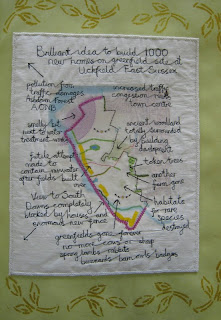 Brilliant idea to build 1000
new homes on greenfield site at
Uckfield East Sussex
pollution from
traffic damages
Ashdown Forest
AONB
increased traffic
congestion
town centre
smelly bit
next to water
treatment works
ancient woodland
totally surrounded
by building
development
futile attempt
made to
contain
after fields built
over
token trees
another
farm gone
View to South
Downs completely
blocked by houses and
enormous new fence
habitats
for rare
species
destroyed
greenfields gone forever
no more cows or sheep
spring lambs rabbits
buzzards barn owls badgers